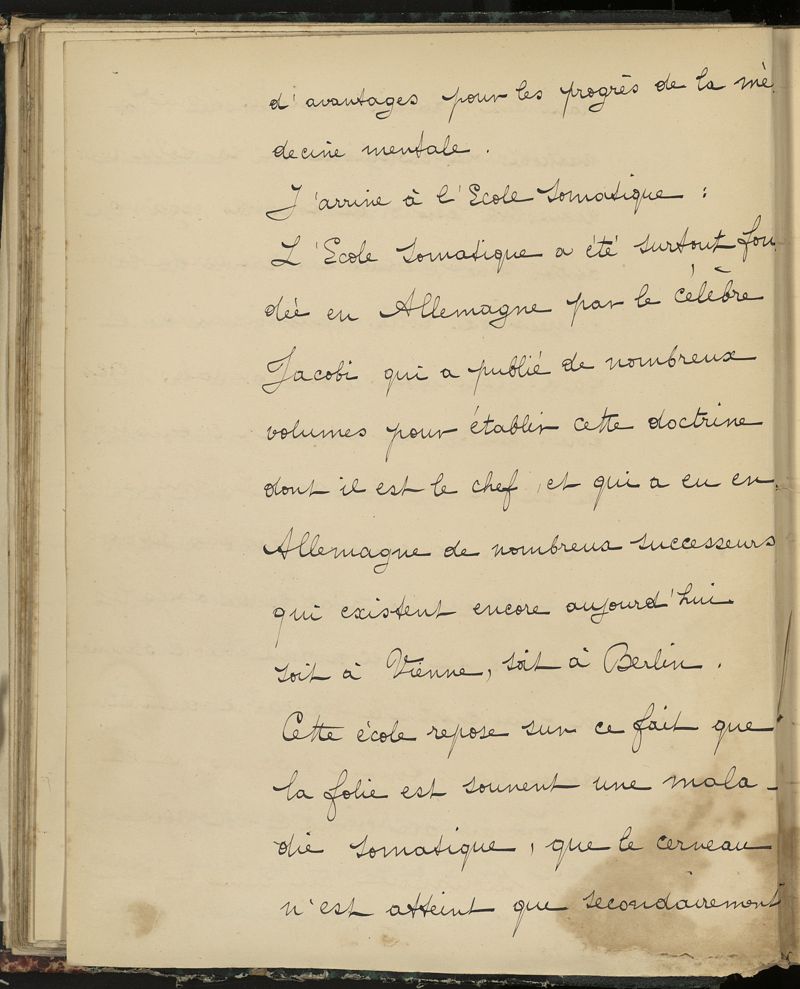 d'avantages pour les progrès de la mé
decine mentale.
J'arrive à l'Ecole Somatique :
L'Ecole Somatique a été surtout fon
dée en Allemagne par le célèbre
Jacobi qui a publié de nombreux
volumes pour établir cette doctrine
dont il est le chef, et qui a eu en
Allemagne de nombreux successeurs
qui existent encore aujourd'hui
soit à Vienne, soit à Berlin.
Cette école repose sur ce fait que
la folie est souvent une mala-
die somatique, que le cerveau
n'est atteint que secondairement